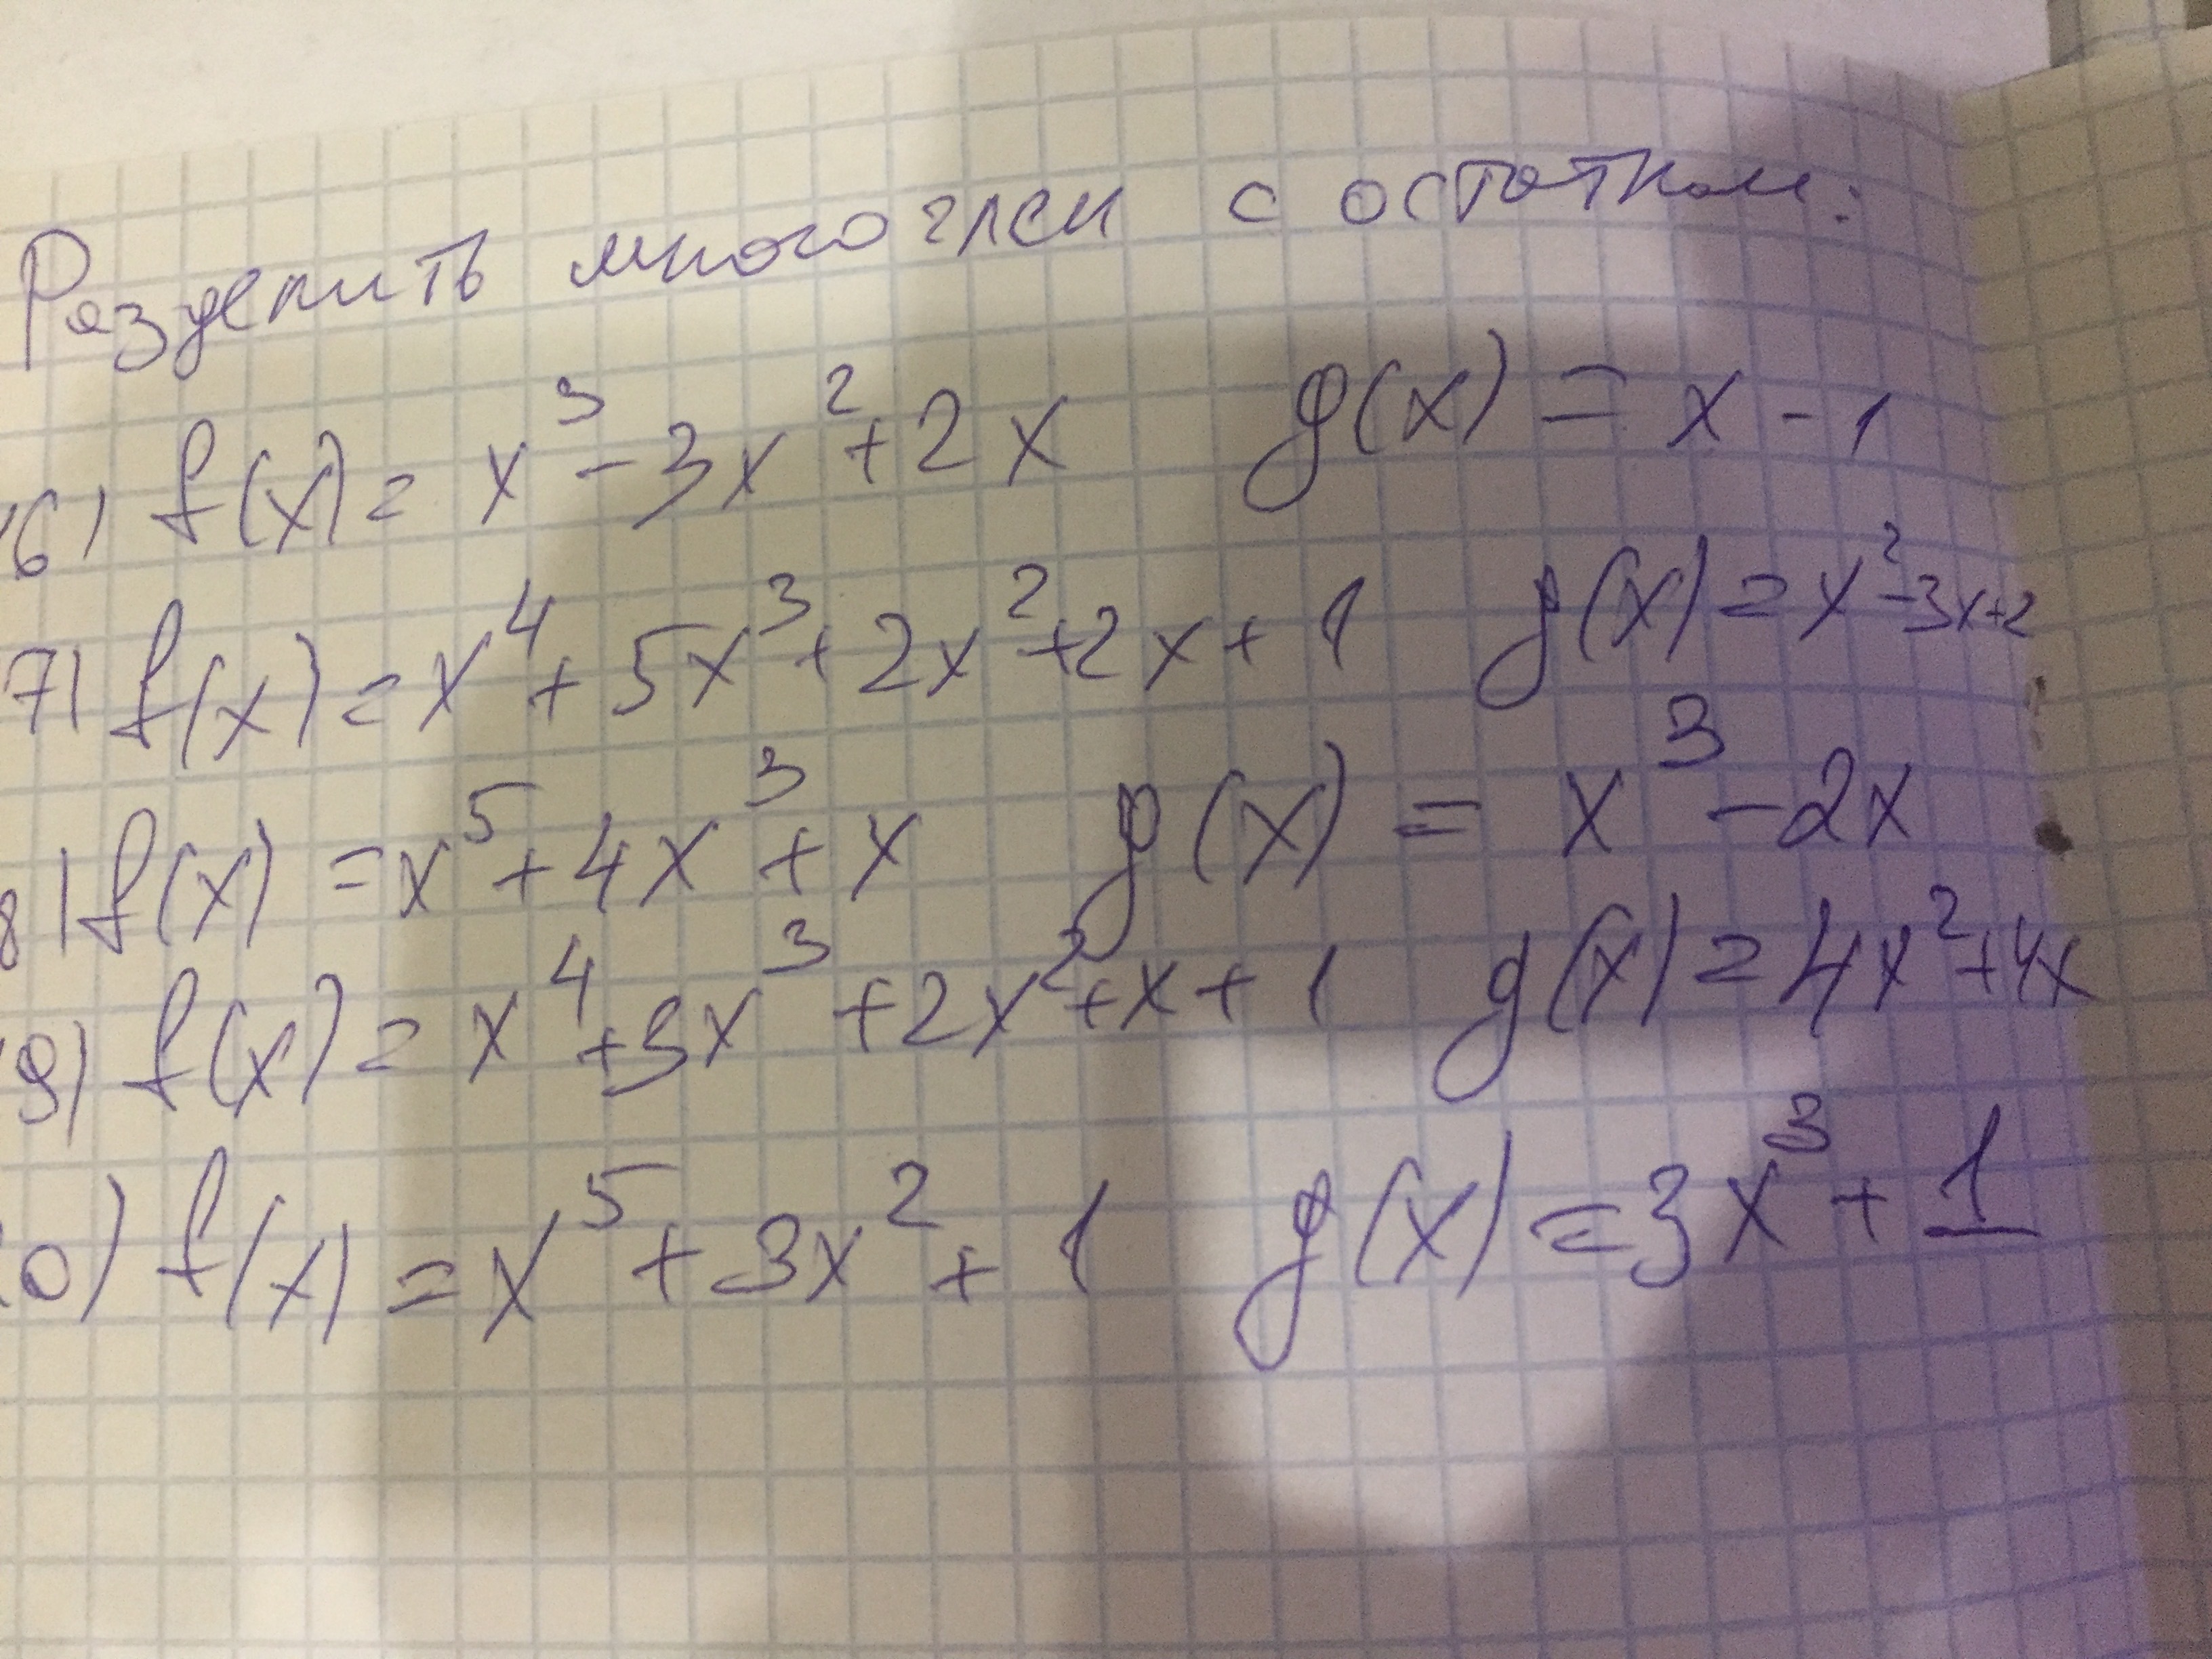 Разделить многочлен с остатком:
16) f(x) = x³ - 3x² + 2x g(x) = x - 1
7) f(x) = x⁴ + 5x³ + 2x² + 2x + 1 g(x) = x² - 3x + 2
8) f(x) = x⁵ + 4x³ + x g(x) = x³ - 2x
19) f(x) = x⁴ + 5x³ + 2x² + x + 1 g(x) = 4x² + 4x
0) f(x) = x⁵ + 3x² + 1 g(x) = 3x³ + 1